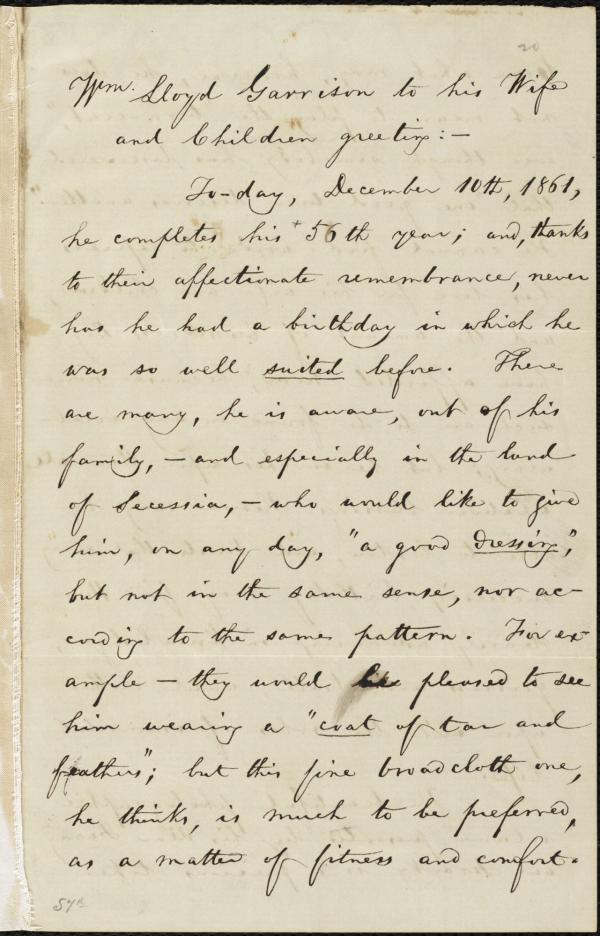 20
Wm. Lloyd Garrison to his Wife
and Children greeting:—
To-day, December 10th, 1861,
he completes his + 56th year; and, thanks
to their affectionate remembrance, never
has he had a birthday in which he
was so well suited before. There
are many, he is aware, out of his
family,—and especially in the land
of Secessia,—who would like to give
him, on any day, "a good dressing",
but not in the same sense, nor ac-
cording to the same pattern. For ex-
ample—they would be pleased to see
him wearing a "coat of tar and
feathers"; but this fine broadcloth one,
he thinks, is much to be preferred,
as a matter of fitness and comfort.
57th